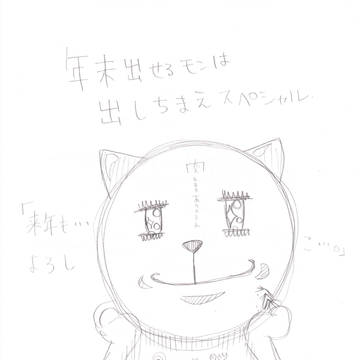 年末出せるモンは
出しちまえスペシャル
肉
「来年も…
よろし
こ…。」